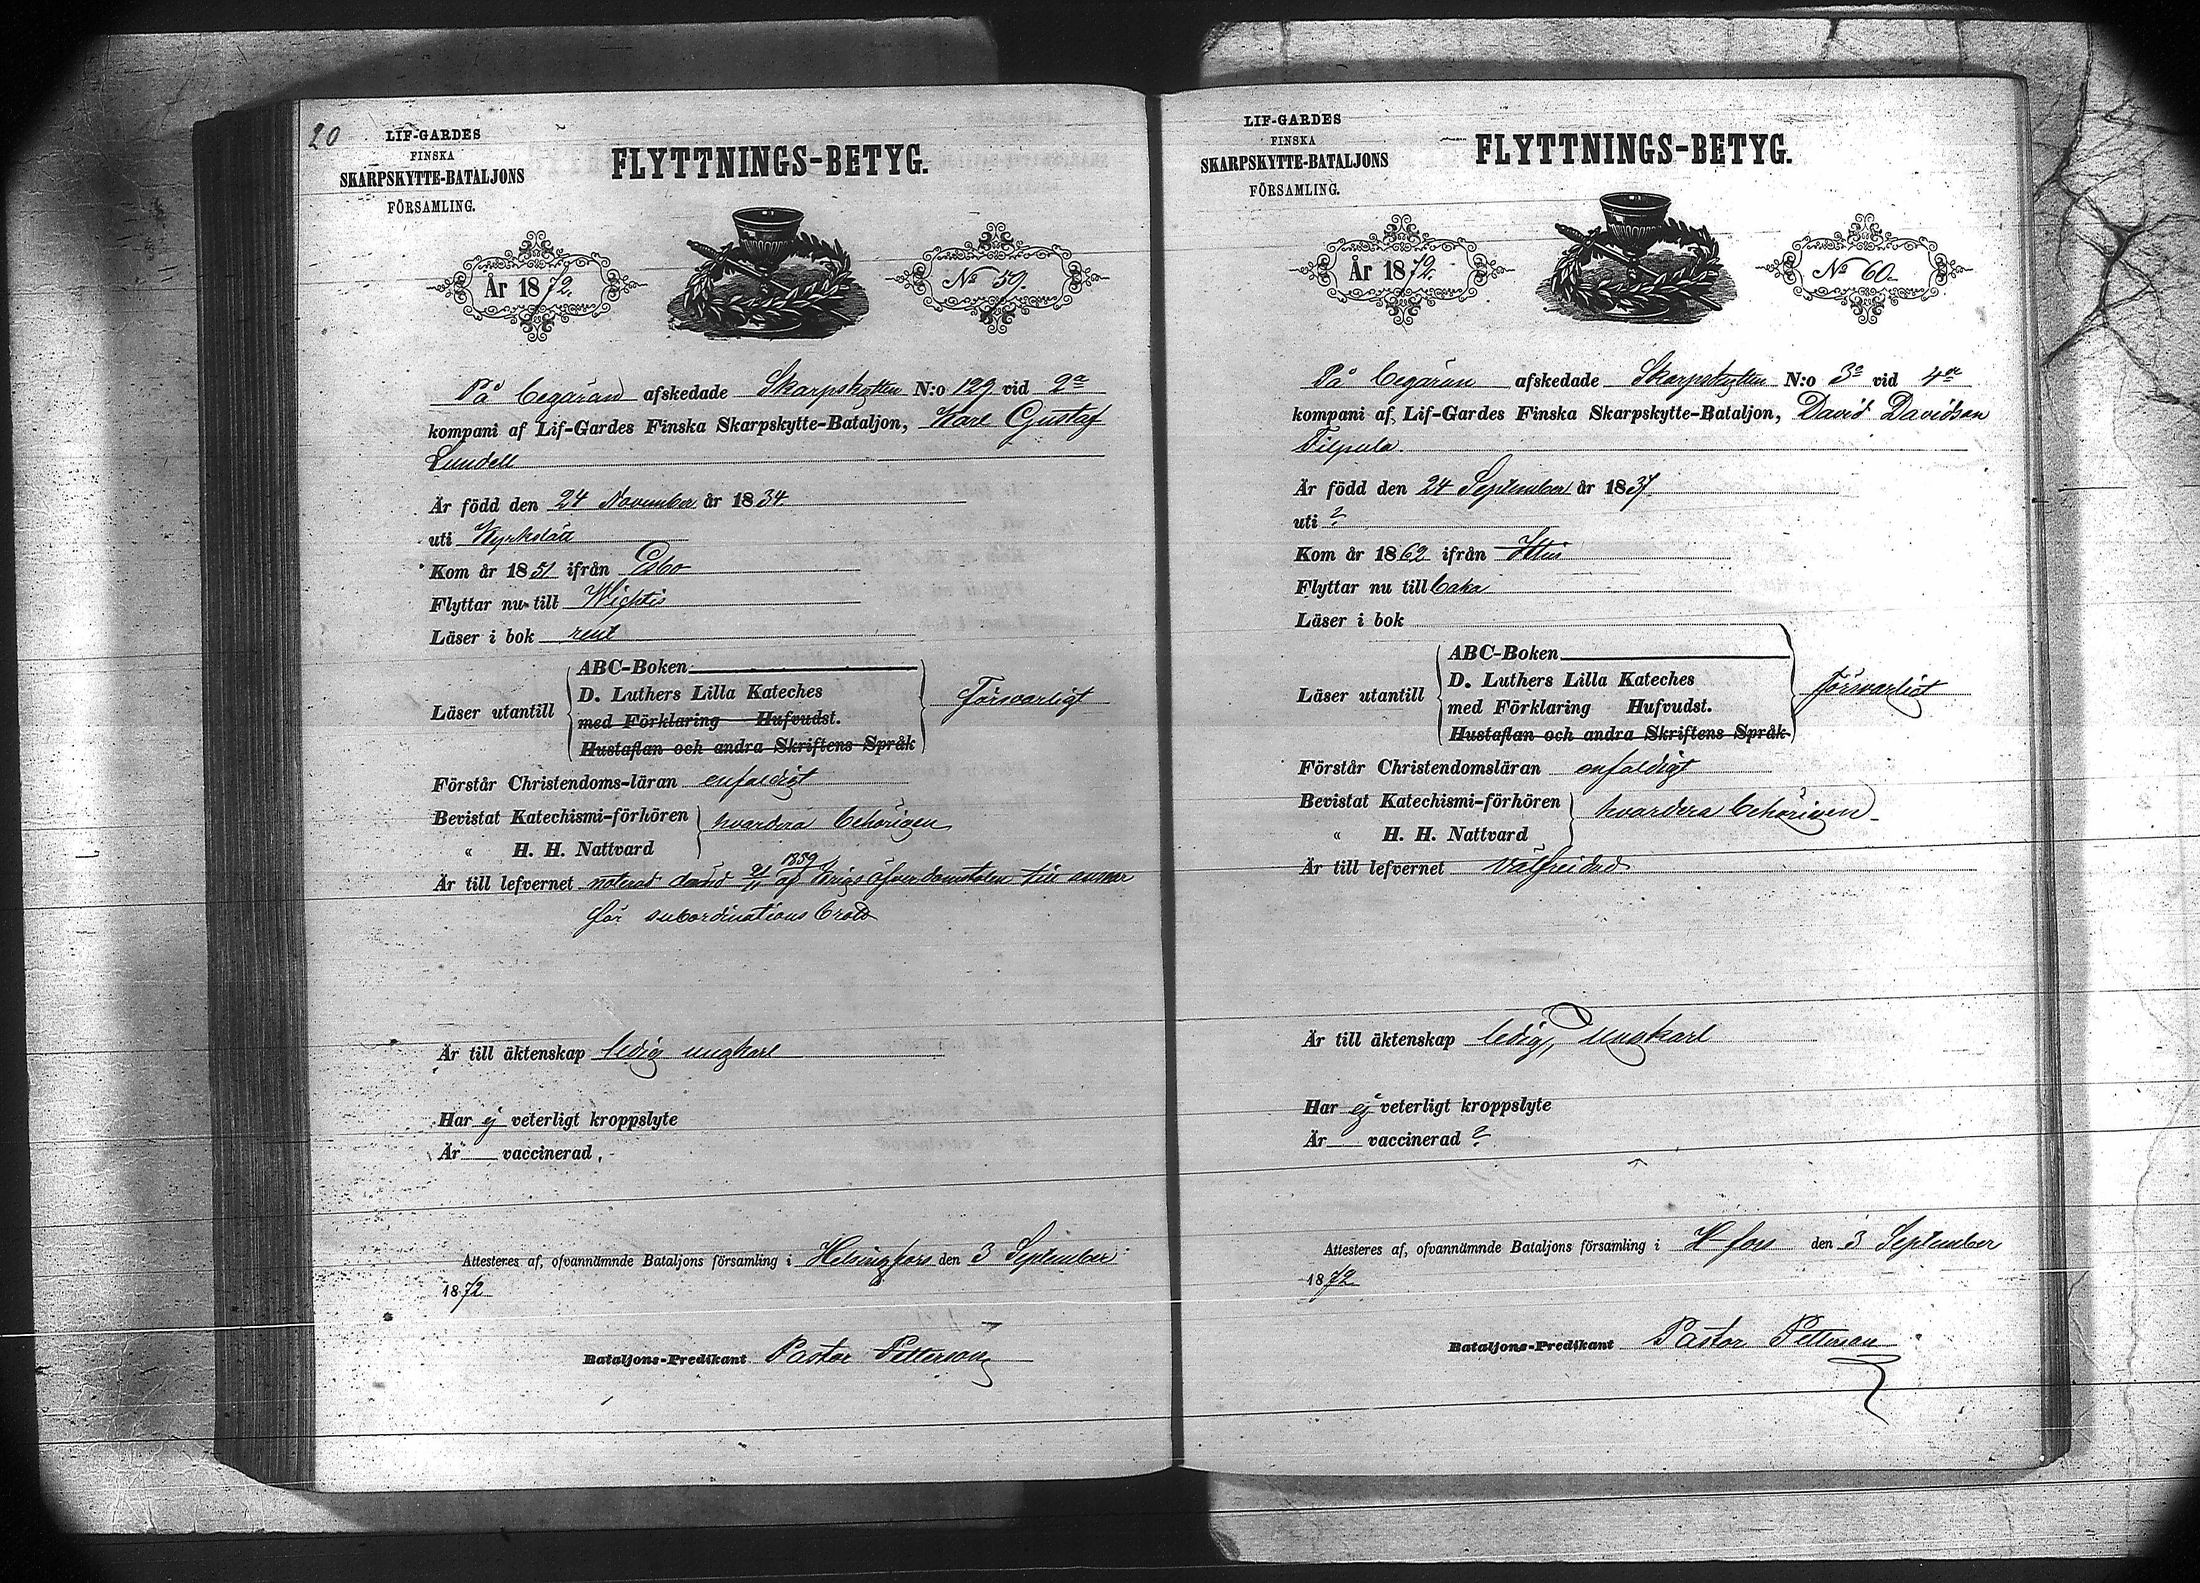 20
LIF-GARDES
FINSKA
SKARPSKYTTE-BATALJONS
FÖRSAMLING.
FLYTTNINGS-BETYG.
År 1872.
No 59.
På begäran afskedade Skarpskytten N:o 129 vid 2a
kompani af Lif-Gardes Finska Skarpskytte-Bataljon, Karl Gustaf
Lundell
Är född den 24 November år 1834.
uti Kyrkslätt
Kom år 1851 ifrån Esbo
Flyttar nu till Wichtis
Läser i bok rent
Läser utantill
ABC-Boken
D. Luthers Lilla Kateches
med Förklaring Hufvudst.
Hustaflan och andra Skriftens Språk
Försvarligt
Förstår Christendoms-läran enfaldigt
Bevistat Katechismi-förhören
" H. H. Nattvard
hvardera behörigen
1859
Är till lefvernet noterad dömd af Krigsöfverdomstolen till ansvar
för subordinations brott
Är till äktenskap ledig ungkarl
Har ej veterligt kroppslyte
Är vaccinerad,
Attesteres af, ofvannämnde Bataljons församling i Helsingfors den 3 September
1872
Bataljons-Predikant Pastor Petterson
LIF-GARDES
FINSKA
SKARPSKYTTE-BATALJONS
FÖRSAMLING.
FLYTTNINGS-BETYG.
År 1872.
No 60.
På begäran afskedade Skarpskytten N:o 3a vid 4de
kompani af, Lif-Gardes Finska Skarpskytte-Bataljon, David Davidson
Filpula.
Är född den 24 September år 1837
uti ?
Kom år 1862 ifrån Ittis
Flyttar nu till
Läser i bok
Läser utantill
ABC-Boken
D. Luthers Lilla Kateches
med Förklaring Hufvudst.
Hustaflan och andra Skriftens Språk
försvarligt
Förstår Christendomsläran enfaldigt
Bevistat Katechismi-förhören
" H. H. Nattvard
hvardera behörigen
Är till lefvernet välfreidad
Är till äktenskap ledig, ungkarl
Har ej veterligt kroppslyte
Är vaccinerad ?
Attesteres af, ofvannämnde Bataljons församling i H-fors den 3 September
1872
Bataljons-Predikant Pastor Petterson